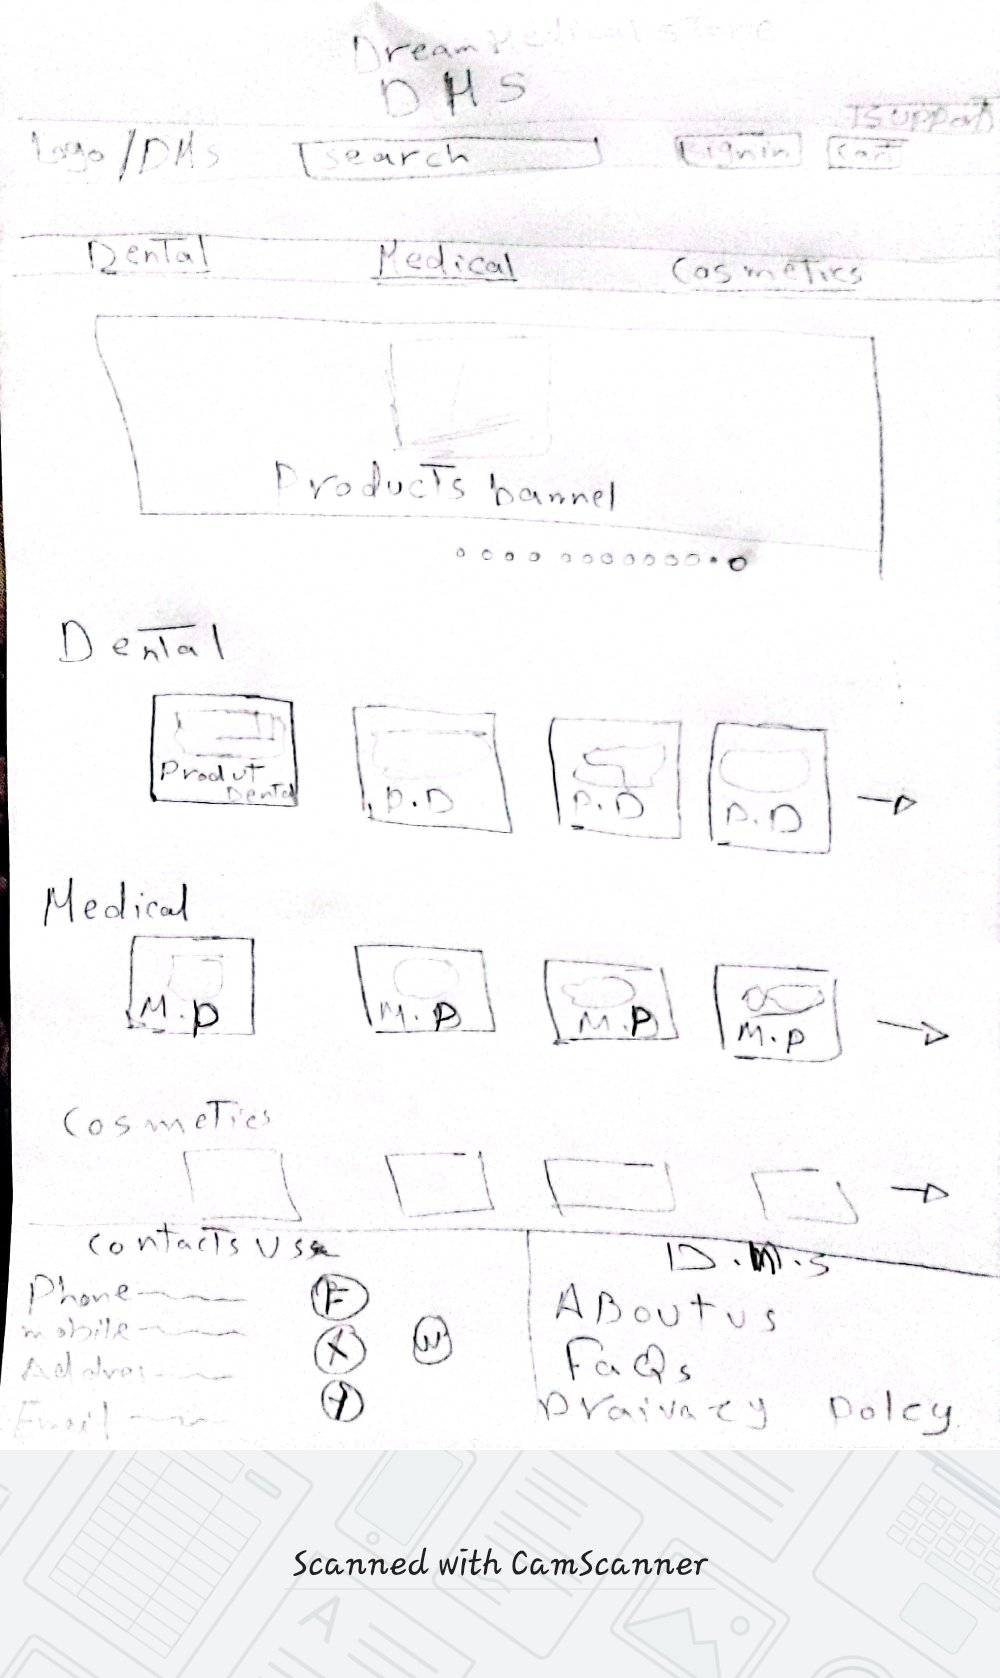 Dream Medical store
DMS
Support
Logo/DMs
search
signin
cart
Dental
Medical
Cosmetics
Products bannel
Dental
Produt
Dental
P.D
P.D
P.D
Medical
M.P
M.P
M.P
M.P
Cosmetics
Contacts Us
Phone
mobile
Addres
Email
F
X
W
Y
D.M.S
ABout us
FaQs
Praivacy polcy
Scanned with CamScanner